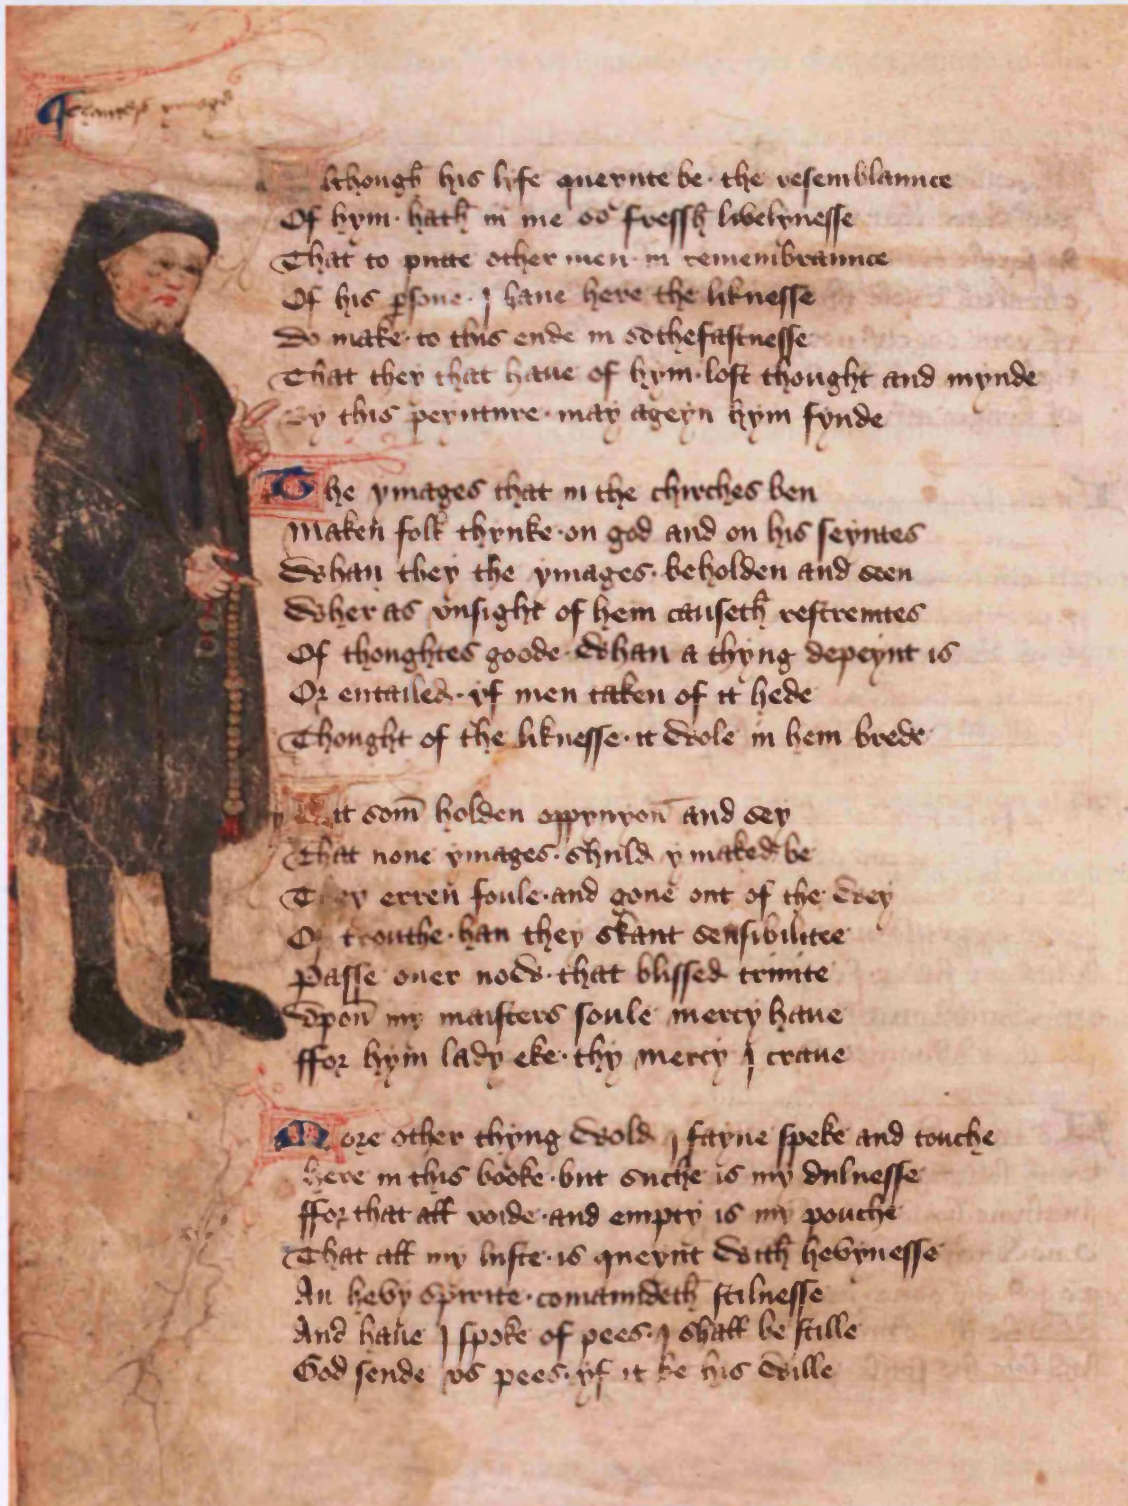 Chaucers ymage
lthough his lyfe queynte be· the resemblaunce
Of hym· hath in me so fressh lyvelynesse
That to putte other men· in remembraunce
Of his psone· I haue here the liknesse
Do make· to this ende in sothefastnesse
That they that haue of hym· lost thought and mynde
By this peynture· may ageyn hym fynde
The ymages that in the chirches ben
Maken folk thynke· on god and on his seyntes
Whan they the ymages· beholden and seen
Wher as vnsight of hem causeth restreintes
Of thoughtes goode· Whan a thyng depeynt is
Or entailed· yf men taken of it hede
Thought of the liknesse· it wole in hem brede
it som holden oppynyon and sey
That none ymages· shuld ymaked be
They erren foule· and gone out of the wey
Of trouthe· han they skant sensibilitee
Passe ouer now· that blissed trinite
Vpon my maisters soule mercy haue
ffor hym lady eke· thy mercy I craue
More other thyng wold I fayne speke and touche
here in this booke· but suche is my dulnesse
ffor that all voide· and empty is my pouche
That all my luste· is queynt with hevynesse
An hevy spirite· comaundeth stilnesse
And haue I spoke of pees· I shall be stille
God sende vs pees· yf it be his wille